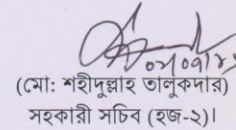 (মো: শহীদুল্লাহ তালুকদার)
সহকারী সচিব (হজ-২)।